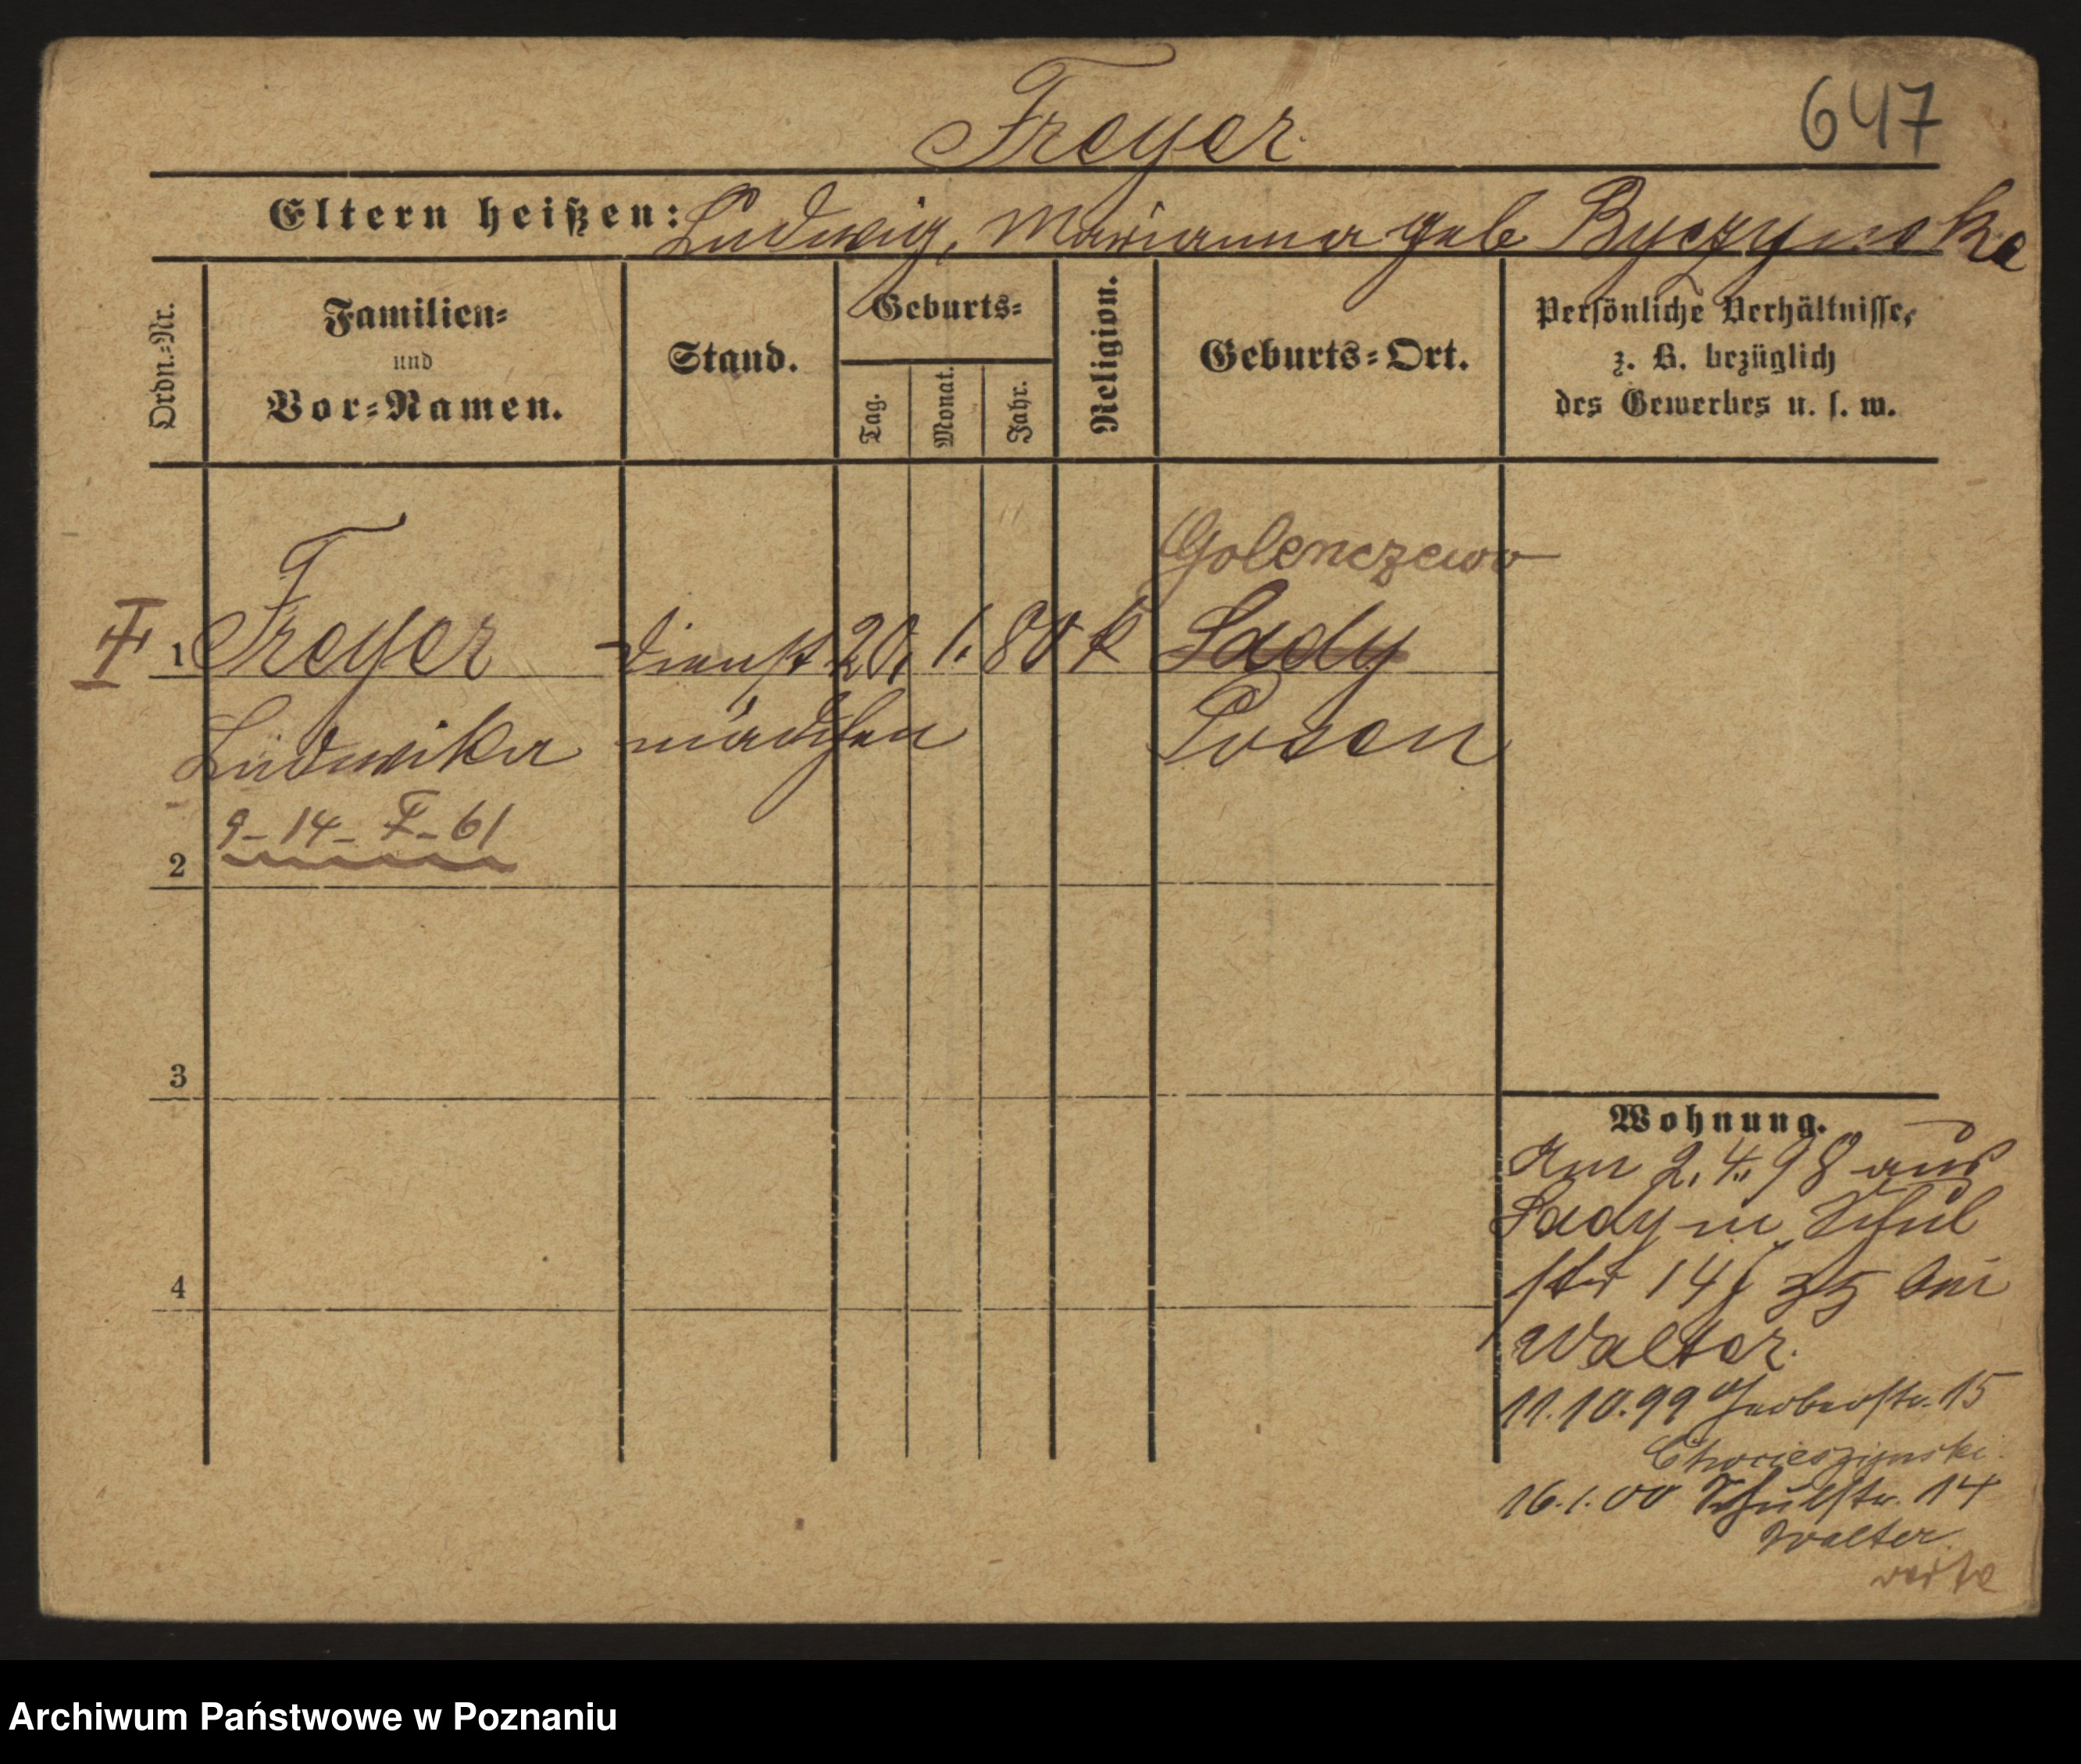 Freyer.
647
Eltern heißen: Ludwig, Marianna geb Byczynska
Ordn.-Nr.
Familien-
und
Vor-Namen.
Stand.
Geburts-
Tag.
Monat.
Jahr.
Religion.
Geburts-Ort.
Persönliche Verhältnisse,
z. B. bezüglich
des Gewerbes u. s. w.
Golenczewo
1 Freyer Dienst 20. 1. 80 k Sady
Ludwika mädchen Posen
9-14-F-61
2
3
4
Wohnung.
Am 2.4.98 aus
Sady n. Schul
str 14 bei
Walter.
11.10.99 Gerberstr. 15
16.1.00 Schulstr. 14
Walter
Archiwum Państwowe w Poznaniu